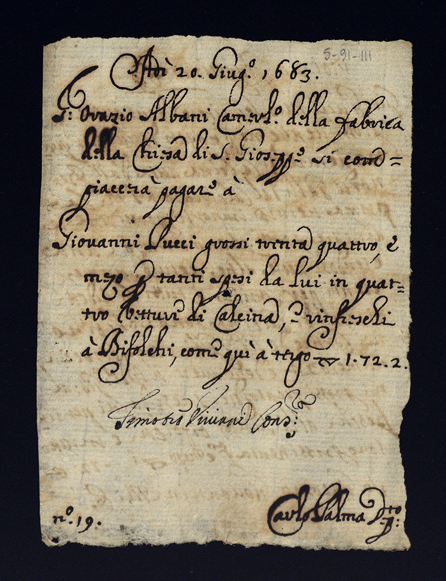 5-91-III
Adì 20. Giug.º 1683.
S.r Orazio Albani Camerl.º della fabrica
della Chiesa di S. Gioseppe si com=
piacerà pagare à
Giovanni Pucci grossi trenta quattro, e
mezo p tanti spesi da lui in quat=
tro vetture di Calcina, e rinfreschi
à Bifolchi, come quì à tergo 1.72.2.
Timoteo Viviani Cons:
nº. 19.
Carlo Palma